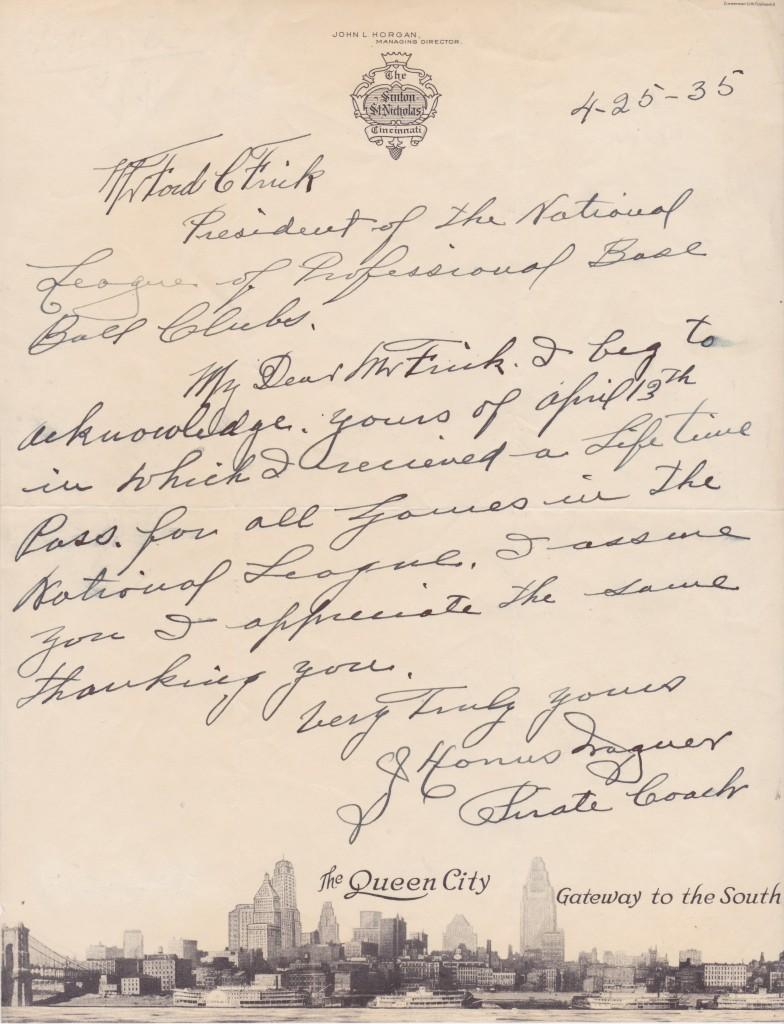 JOHN L HORGAN.
MANAGING DIRECTOR.
The
Sinton
St Nicholas
Cincinnati
4-25-35
Mr Ford C Frick
President of the National
League of Professional Base
Ball Clubs.
My Dear Mr Frick. I beg to
acknowledge. yours of april 13th
in which I recieved a Life time
Pass. for all Games in the
National League. I assure
you I appreciate the same
thanking you.
Very Truly yours
J Honus Wagner
Pirate Coach
The Queen City
Gateway to the South